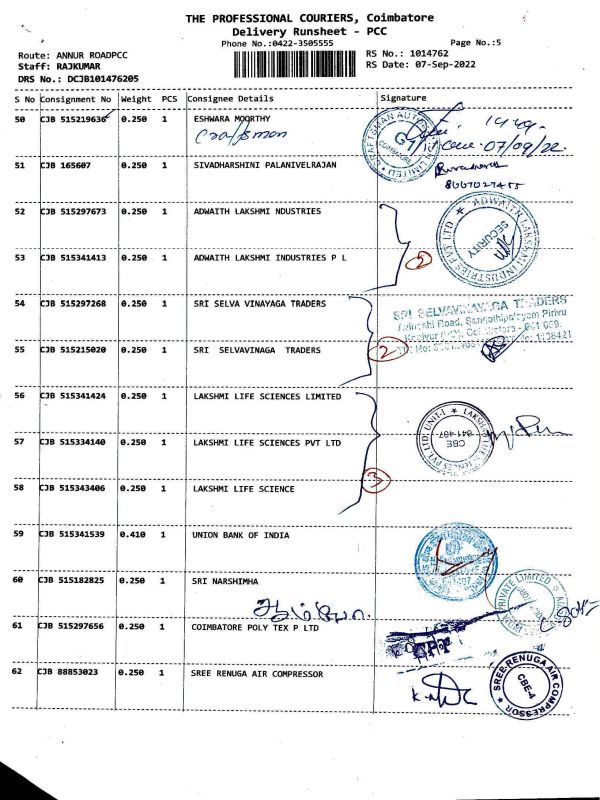 THE PROFESSIONAL COURIERS, Coimbatore
Delivery Runsheet - PCC
Phone No.:0422-3505555
Page No.:5
Route: ANNUR ROADPCC
RS No.: 1014762
Staff: RAJKUMAR
RS Date: 07-Sep-2022
DRS No.: DCJB101476205
S No Consignment No Weight PCS Consignee Details Signature
50 CJB 515219636 0.250 1 ESHWARA MOORTHY
Craftsman
07/09/22
51 CJB 165607 0.250 1 SIVADHARSHINI PALANIVELRAJAN
52 CJB 515297673 0.250 1 ADWAITH LAKSHMI NDUSTRIES
ADWAITH LAKSHMI INDUSTRIES PVT LTD
SECURITY
53 CJB 515341413 0.250 1 ADWAITH LAKSHMI INDUSTRIES P L
2
54 CJB 515297268 0.250 1 SRI SELVA VINAYAGA TRADERS
SRI SELVAVINAYAGA TRADERS
55 CJB 515215020 0.250 1 SRI SELVAVINAGA TRADERS
2
56 CJB 515341424 0.250 1 LAKSHMI LIFE SCIENCES LIMITED
57 CJB 515334140 0.250 1 LAKSHMI LIFE SCIENCES PVT LTD
CBE
641-407
3
58 CJB 515343406 0.250 1 LAKSHMI LIFE SCIENCE
59 CJB 515341539 0.410 1 UNION BANK OF INDIA
60 CJB 515182825 0.250 1 SRI NARSHIMHA
PRIVATE LIMITED
61 CJB 515297656 0.250 1 COIMBATORE POLY TEX P LTD
CPT
62 CJB 88853023 0.250 1 SREE RENUGA AIR COMPRESSOR
SREE RENUGA AIR COMPRESSOR
CBE-4